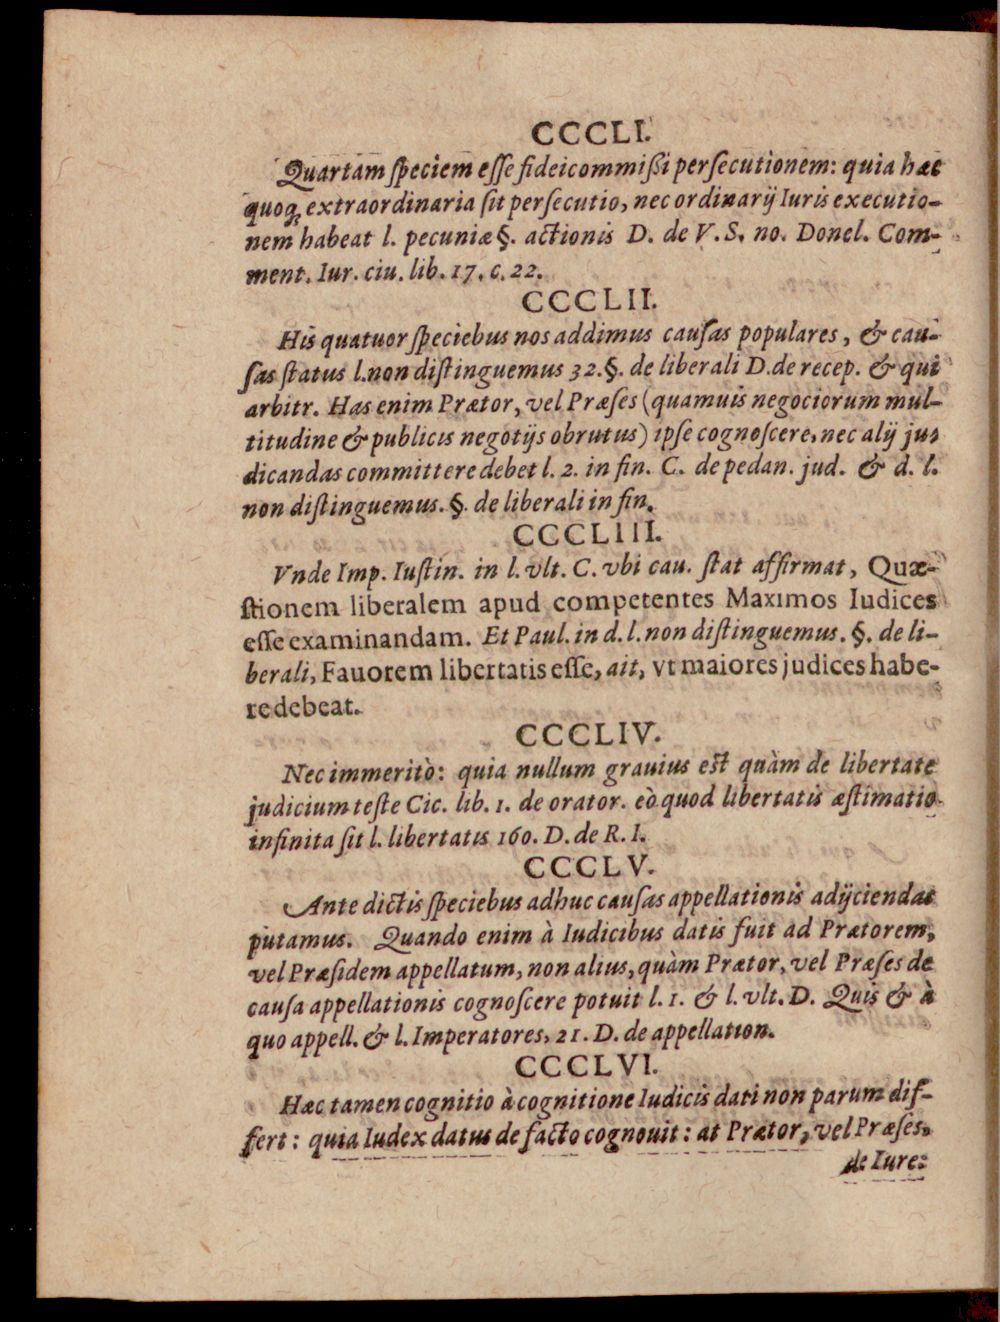 CCCLI.
Quartam ſpeciem eſſe fideicommiſſi perſecutionem: quia hæc
quoq; extraordinaria ſit perſecutio, nec ordinarij Iuris executio-
nem habeat l. pecuniæ §. actionis D. de V. S. no. Donel. Com-
ment. Iur. ciu. lib. 17. c. 22.
CCCLII.
His quatuor ſpeciebus nos addimus cauſas populares, & cau-
ſas ſtatus l. non diſtinguemus 32. §. de liberali D. de recep. & qui
arbitr. Has enim Prætor, vel Præſes (quamuis negociorum mul-
titudine & publicis negotijs obrutus) ipſe cognoſcere, nec alij ju-
dicandas committere debet l. 2. in fin. C. de pedan. jud. & d. l.
non diſtinguemus. §. de liberali in fin.
CCCLIII.
Vnde Imp. Iuſtin. in l. vlt. C. vbi cau. ſtat affirmat, Quæ-
ſtionem liberalem apud competentes Maximos Iudices
eſſe examinandam. Et Paul. in d. l. non diſtinguemus. §. de li-
berali, Fauorem libertatis eſſe, ait, vt maiores judices habe-
re debeat.
CCCLIV.
Nec immeritò: quia nullum grauius eſt quàm de libertate
judicium teſte Cic. lib. 1. de orator. eò quod libertatis æſtimatio
infinita ſit l. libertatis 160. D. de R. I.
CCCLV.
Ante dictis ſpeciebus adhuc cauſas appellationis adijciendas
putamus. Quando enim à Iudicibus datis fuit ad Prætorem,
vel Præſidem appellatum, non alius, quàm Prætor, vel Præſes de
cauſa appellationis cognoſcere potuit l. 1. & l. vlt. D. Quis & à
quo appell. & l. Imperatores, 21. D. de appellation.
CCCLVI.
Hæc tamen cognitio à cognitione Iudicis dati non parum dif-
fert: quia Iudex datus de facto cognouit: at Prætor, vel Præſes,
de Iure: